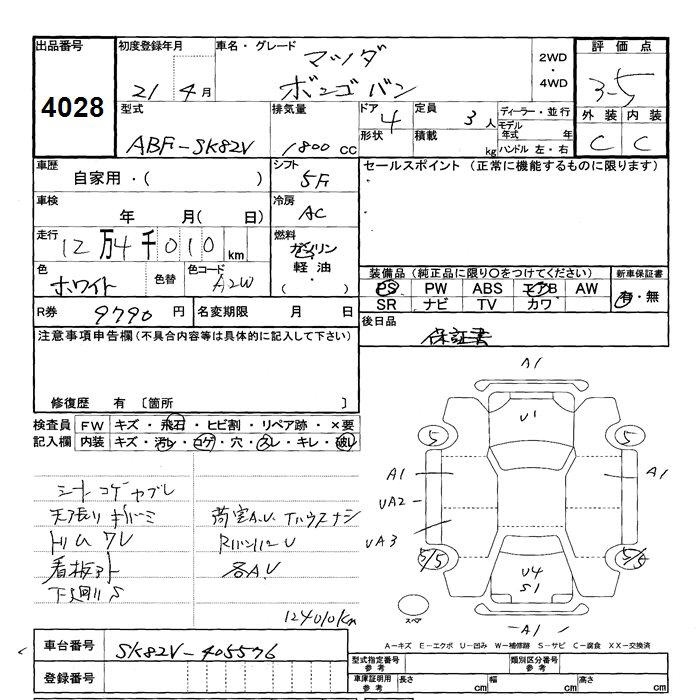 出品番号 初度登録年月 車名・グレード マツダ 2WD・4WD 評価点
4028 21 4月 ボンゴバン 3-5
型式 排気量 ドア 4 定員 3人 ディーラー・並行 外装 内装
ABF-SK82V 1800cc 形状 積載 kg モデル年式 年 ハンドル 左・右 C C
車歴 自家用・( ) シフト 5F セールスポイント (正常に機能するものに限ります)
車検 年 月( 日) 冷房 AC
走行 12万4千010km 燃料 ガソリン 軽油 ( ・ )
色 ホワイト 色替 色コード A2W
装備品 (純正品に限り○をつけてください) 新車保証書
PS PW ABS エアB AW 有・無
SR ナビ TV カワ
R券 9790円 名変期限 月 日 後日品 保証書
注意事項申告欄 (不具合内容等は具体的に記入して下さい)
修復歴 有 〔箇所 〕
検査員 FW キズ・飛石・ヒビ割・リペア跡・×要
記入欄 内装 キズ・汚レ・コゲ・穴・スレ・キレ・破レ
シートコゲヤブレ
天張リ
トリム ワレ
看板アト
下廻リS
荷室A.U
各A.U
124010km
A1
U1
5 5
A1 A1
UA2
UA3
5/5 5/5
U4
S1
スペア
A1
A-キズ E-エクボ U-凹み W-補修跡 S-サビ C-腐食 XX-交換済
車台番号 SK82V-405576
登録番号
型式指定番号 参考 類別区分番号 参考
車庫証明用 参考 長さ cm 幅 cm 高さ cm